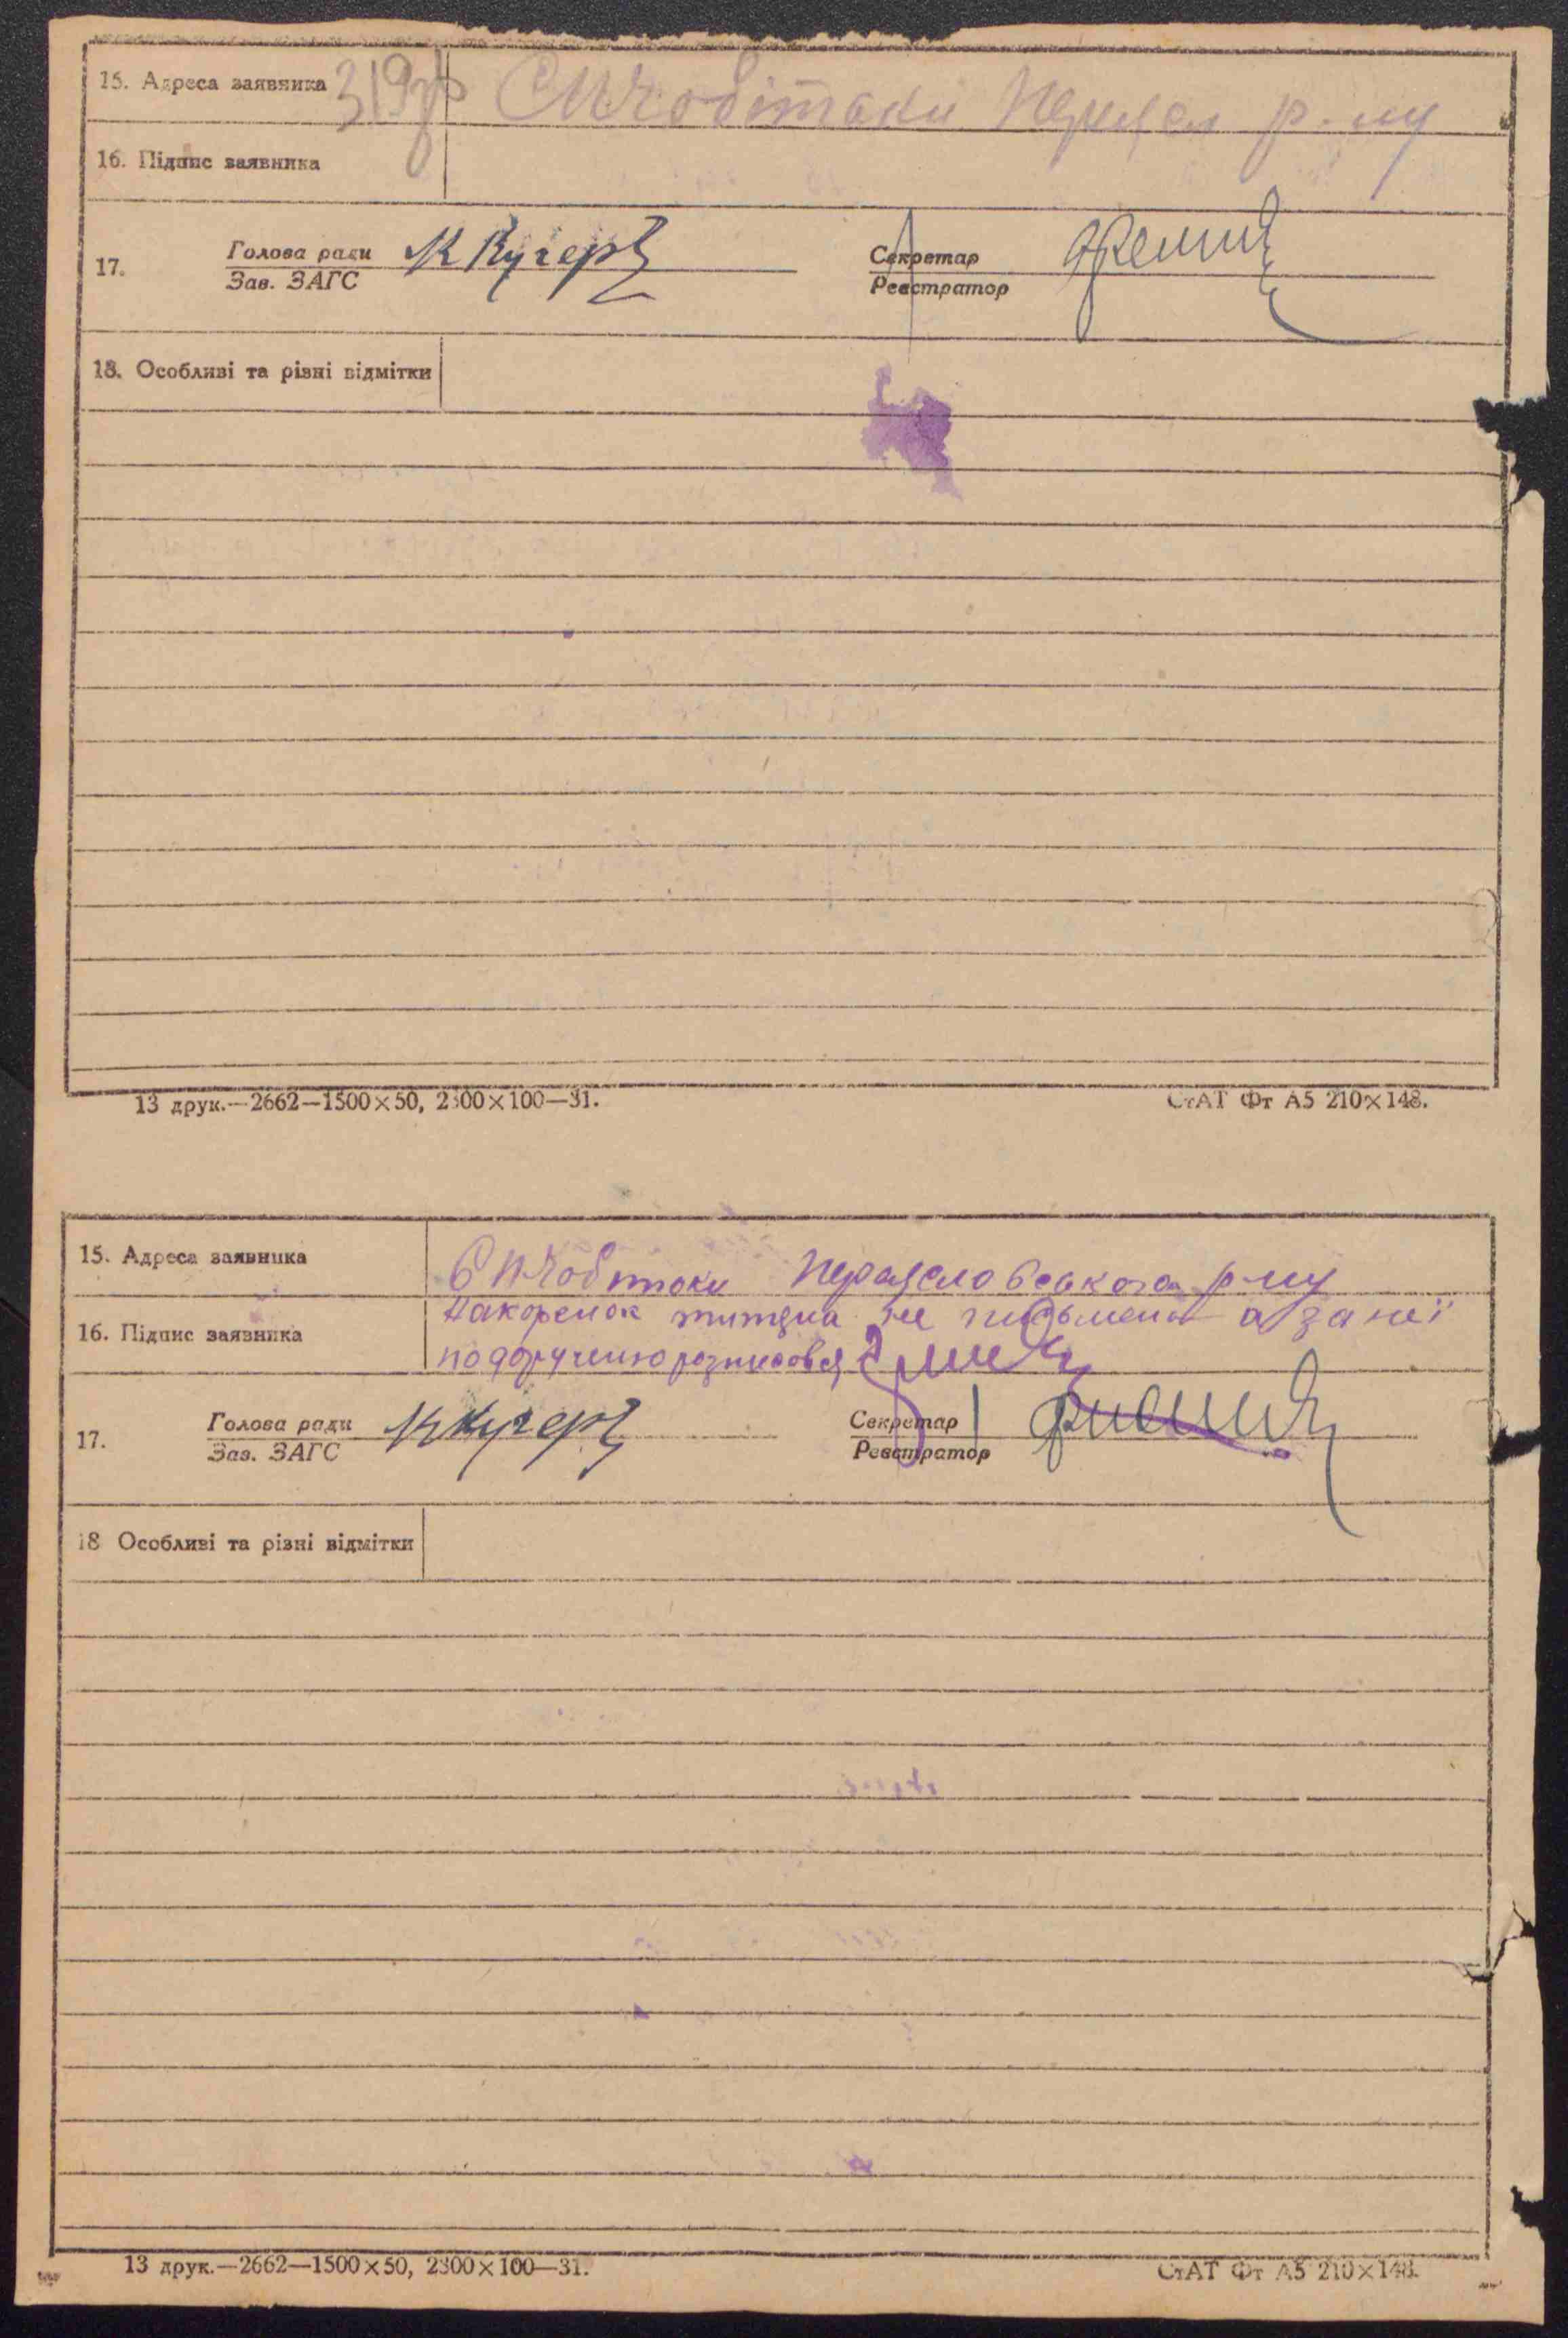 15. Адреса заявника 319 Чобітаки р-ну
16. Підпис заявника
17. Голова ради К Кучер Секретар
Зав. ЗАГС Реєстратор
18. Особливі та різні відмітки
13 друк.—2662—1500×50, 2300×100—31. СтАТ Фт А5 210×148.
15. Адреса заявника р-ну
16. Підпис заявника не письмена а за неї
по дорученю розписовся
17. Голова ради К Кучер Секретар
Зав. ЗАГС Реєстратор
18 Особливі та різні відмітки
13 друк.—2662—1500×50, 2300×100—31. СтАТ Фт А5 210×148.